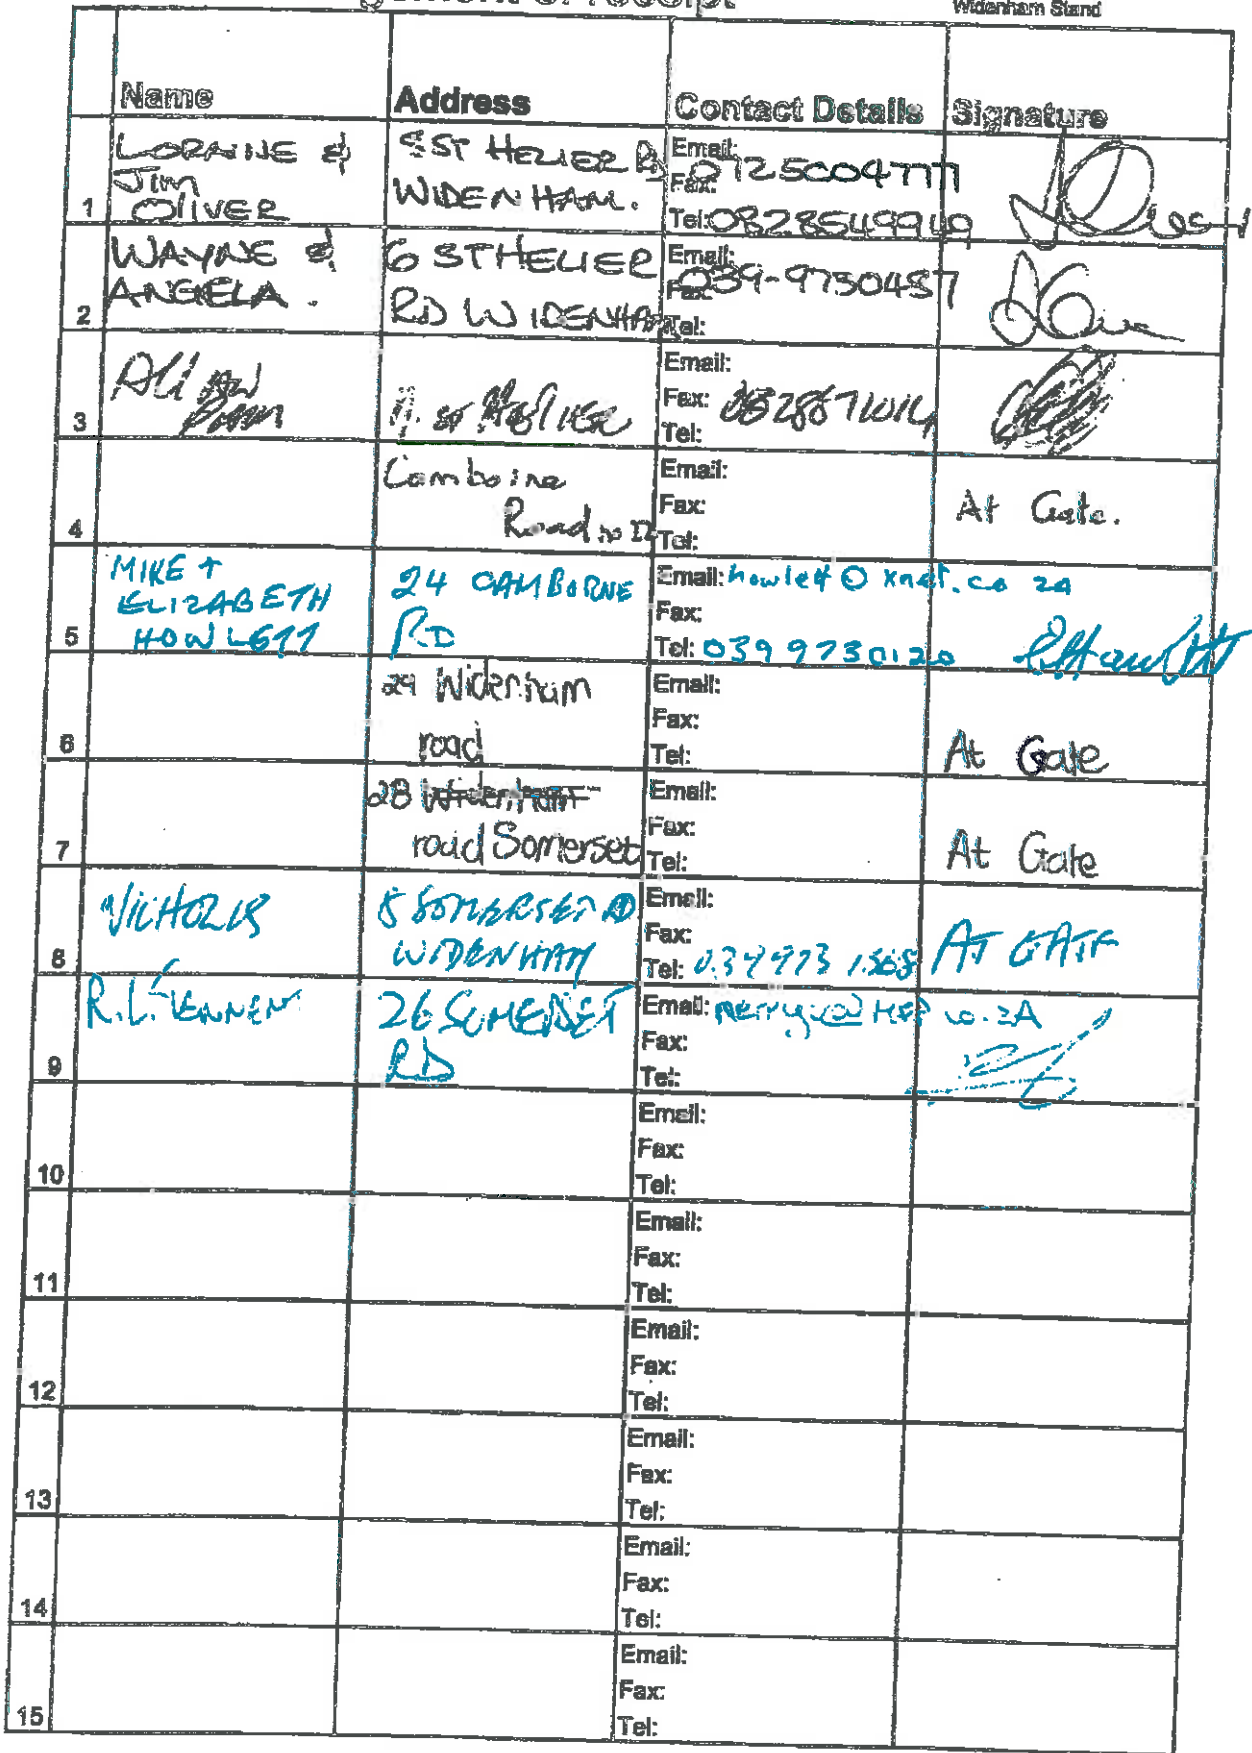 of receipt
Widenham Stand
Name Address Contact Details Signature
LORAINE &
JIM
OLIVER
ST HELIER
WIDENHAM.
Email:
Fax:
Tel: 0828549949
1
WAYNE &
ANGELA.
6 ST HELIER
RD WIDENHAM
Email:
Fax: 039-9730457
Tel:
2
ST HELIER
Email:
Fax:
Tel:
3
Camboine
Road no
Email:
Fax:
Tel:
At Gate.
4
MIKE +
ELIZABETH
HOWLETT
24 CAMBORNE
RD
Email: howlett@xnet.co za
Fax:
Tel: 039 9730120
5
29 Widenham
road
Email:
Fax:
Tel:
At Gate
6
28 Widenham
road Somerset
Email:
Fax:
Tel:
At Gate
7
8 SOMERSET RD
WIDENHAM
Email:
Fax:
Tel:
AT GATE
8
26 SOMERSET
RD
Email:
Fax:
Tel:
9
Email:
Fax:
Tel:
10
Email:
Fax:
Tel:
11
Email:
Fax:
Tel:
12
Email:
Fax:
Tel:
13
Email:
Fax:
Tel:
14
Email:
Fax:
Tel:
15